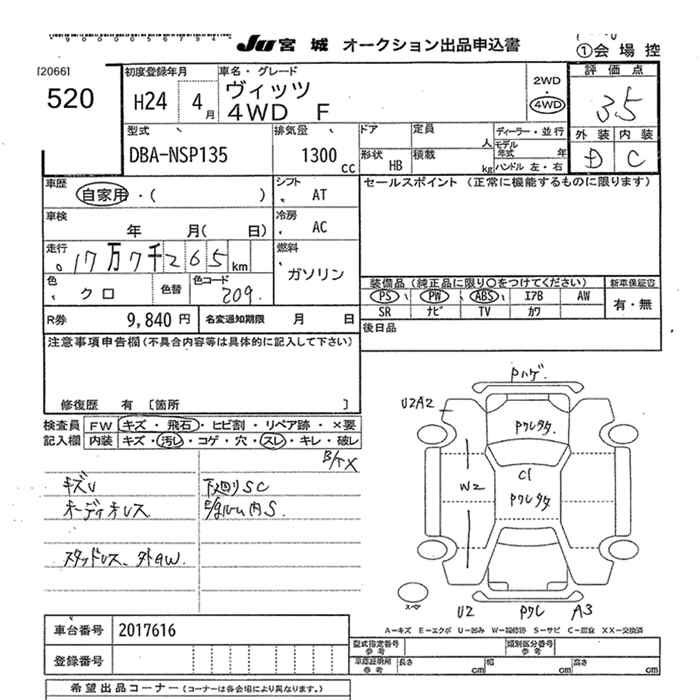 JU 宮城 オークション出品申込書
①会場控
[2066]
520
初度登録年月 車名・グレード
H24 4月
ヴィッツ
4WD F
2WD
・
4WD
評価点
3.5
外装 内装
D C
型式 排気量
DBA-NSP135 1300cc
ドア 定員 人
形状 HB 積載 kg
ディーラー・並行
モデル年式 年
ハンドル 左・右
車歴 自家用・( )
シフト AT
セールスポイント (正常に機能するものに限ります)
車検 年 月( 日)
冷房 AC
走行 17万7千265km
燃料 ガソリン
色 クロ 色替 色コード 209
装備品 (純正品に限り○をつけてください) 新車保証書
PS PW ABS エアB AW 有・無
SR ナビ TV カワ
R券 9,840円 名変通知期限 月 日
後日品
注意事項申告欄 (不具合内容等は具体的に記入して下さい)
修復歴 有 [箇所 ]
検査員 FW キズ・飛石・ヒビ割・リペア跡・×要
記入欄 内装 キズ・汚し・コゲ・穴・スレ・キレ・破レ
キズU
オーディオレス
スタッドレス、外AW.
下廻りSC
E/gルーム内S.
Pハゲ.
U2A2
Pクレタタ.
C1
W2
Pクレタタ
スペア
U2 Pクレ A3
A－キズ E－エクボ U－凹み W－補修跡 S－サビ C－腐食 XX－交換済
車台番号 2017616
登録番号
型式指定番号 参考 類別区分番号 参考
車庫証明用 参考 長さ cm 幅 cm 高さ cm
希望出品コーナー (コーナーは各会場により異なります。)